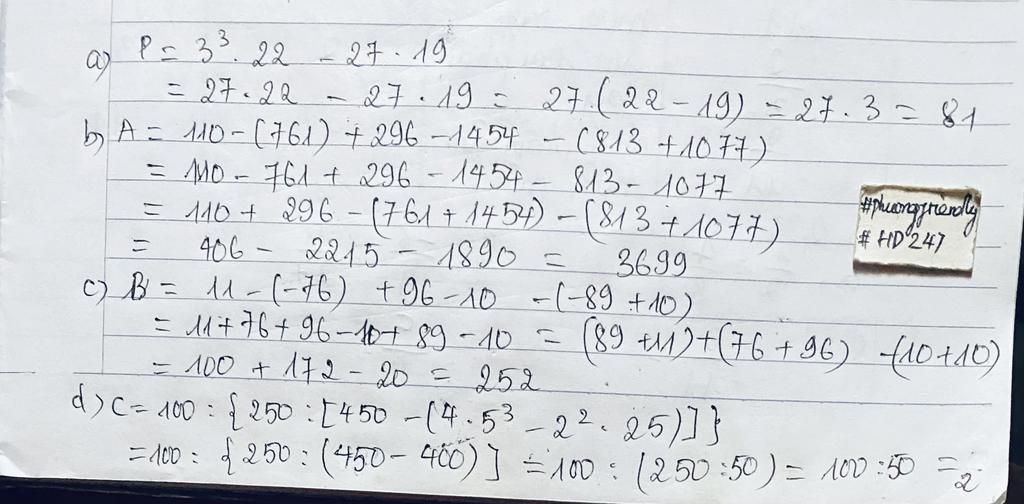 a) P = 3³ · 22 - 27 · 19
= 27 · 22 - 27 · 19 = 27 · (22 - 19) = 27 · 3 = 81
b) A = 110 - (761) + 296 - 1454 - (813 + 1077)
= 110 - 761 + 296 - 1454 - 813 - 1077
= 110 + 296 - (761 + 1454) - (813 + 1077)
= 406 - 2215 - 1890 = 3699
c) B = 11 - (-76) + 96 - 10 - (-89 + 10)
= 11 + 76 + 96 - 10 + 89 - 10 = (89 + 11) + (76 + 96) - (10 + 10)
= 100 + 172 - 20 = 252
d) C = 100 : {250 : [450 - (4 · 5³ - 2² · 25)]}
= 100 : {250 : (450 - 400)] = 100 : (250 : 50) = 100 : 50 = 2
#phuongfriendly
# HD 247